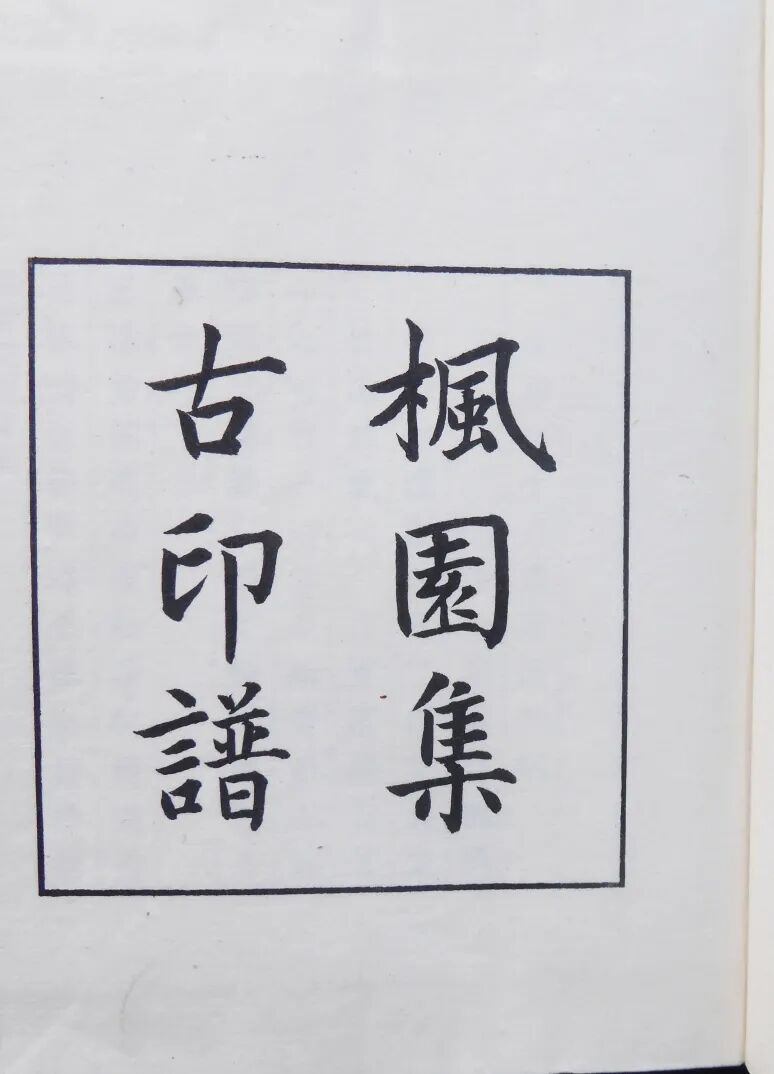 楓園集
古印譜